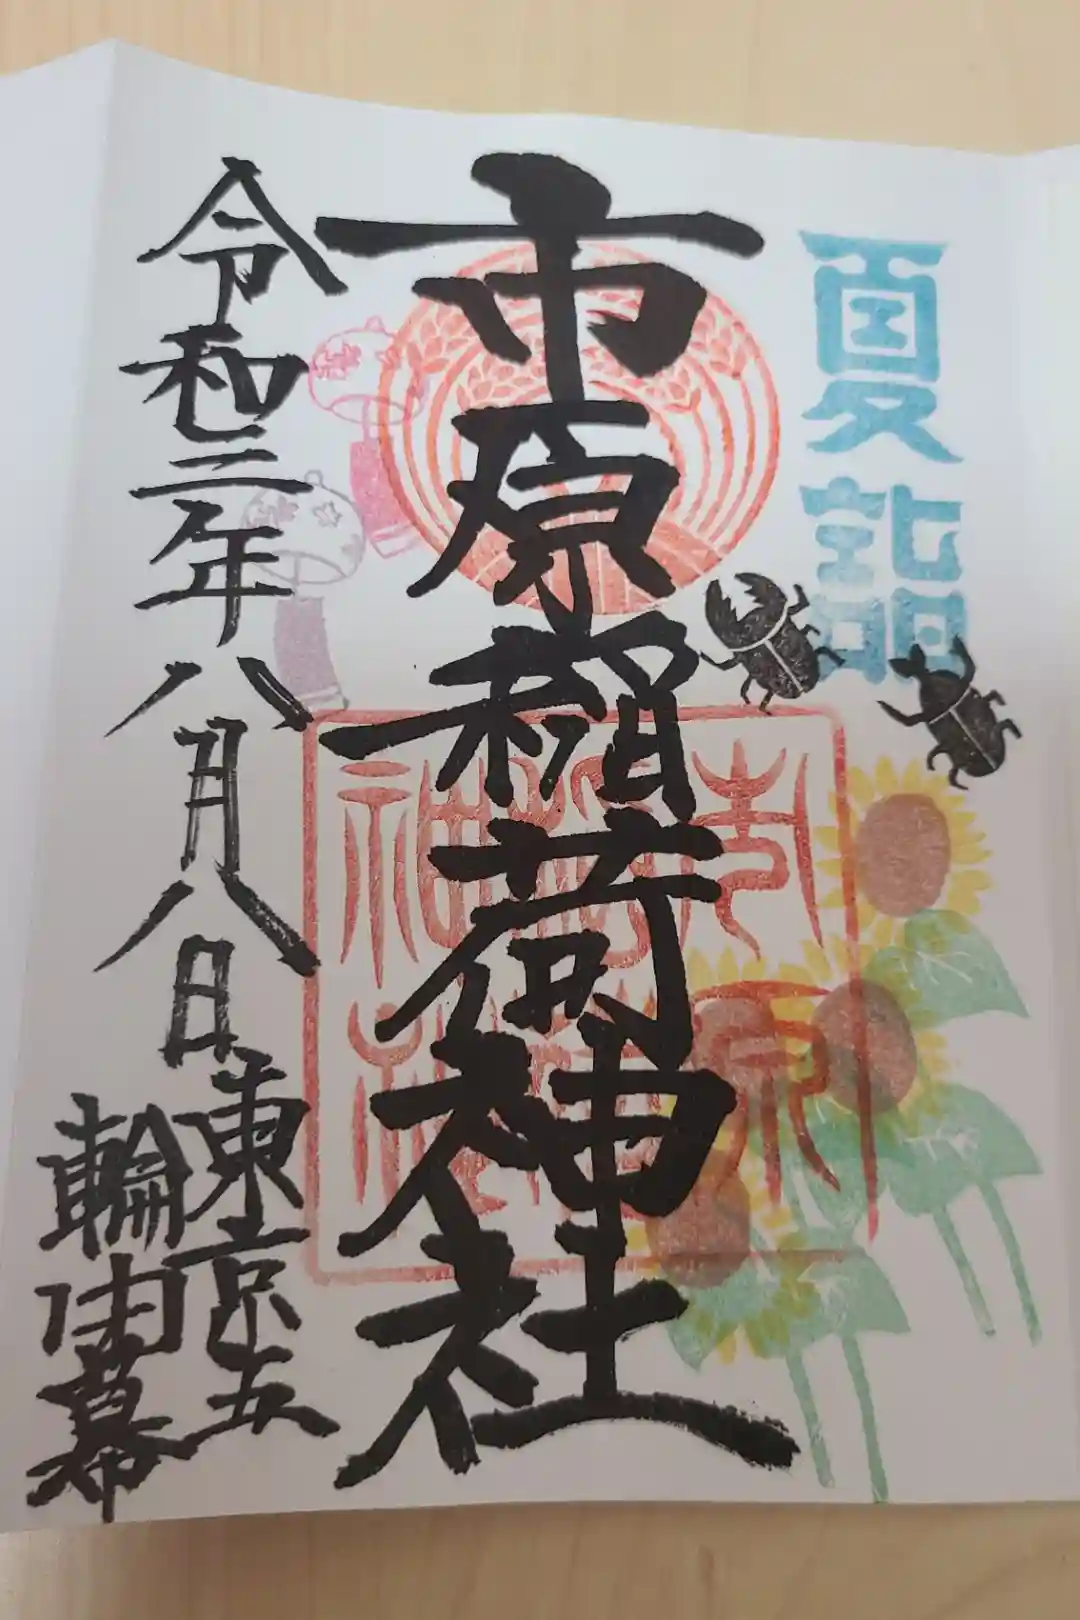 夏詣
市原稲荷神社
市原
神社
令和三年八月八日
東京五
輪閉幕